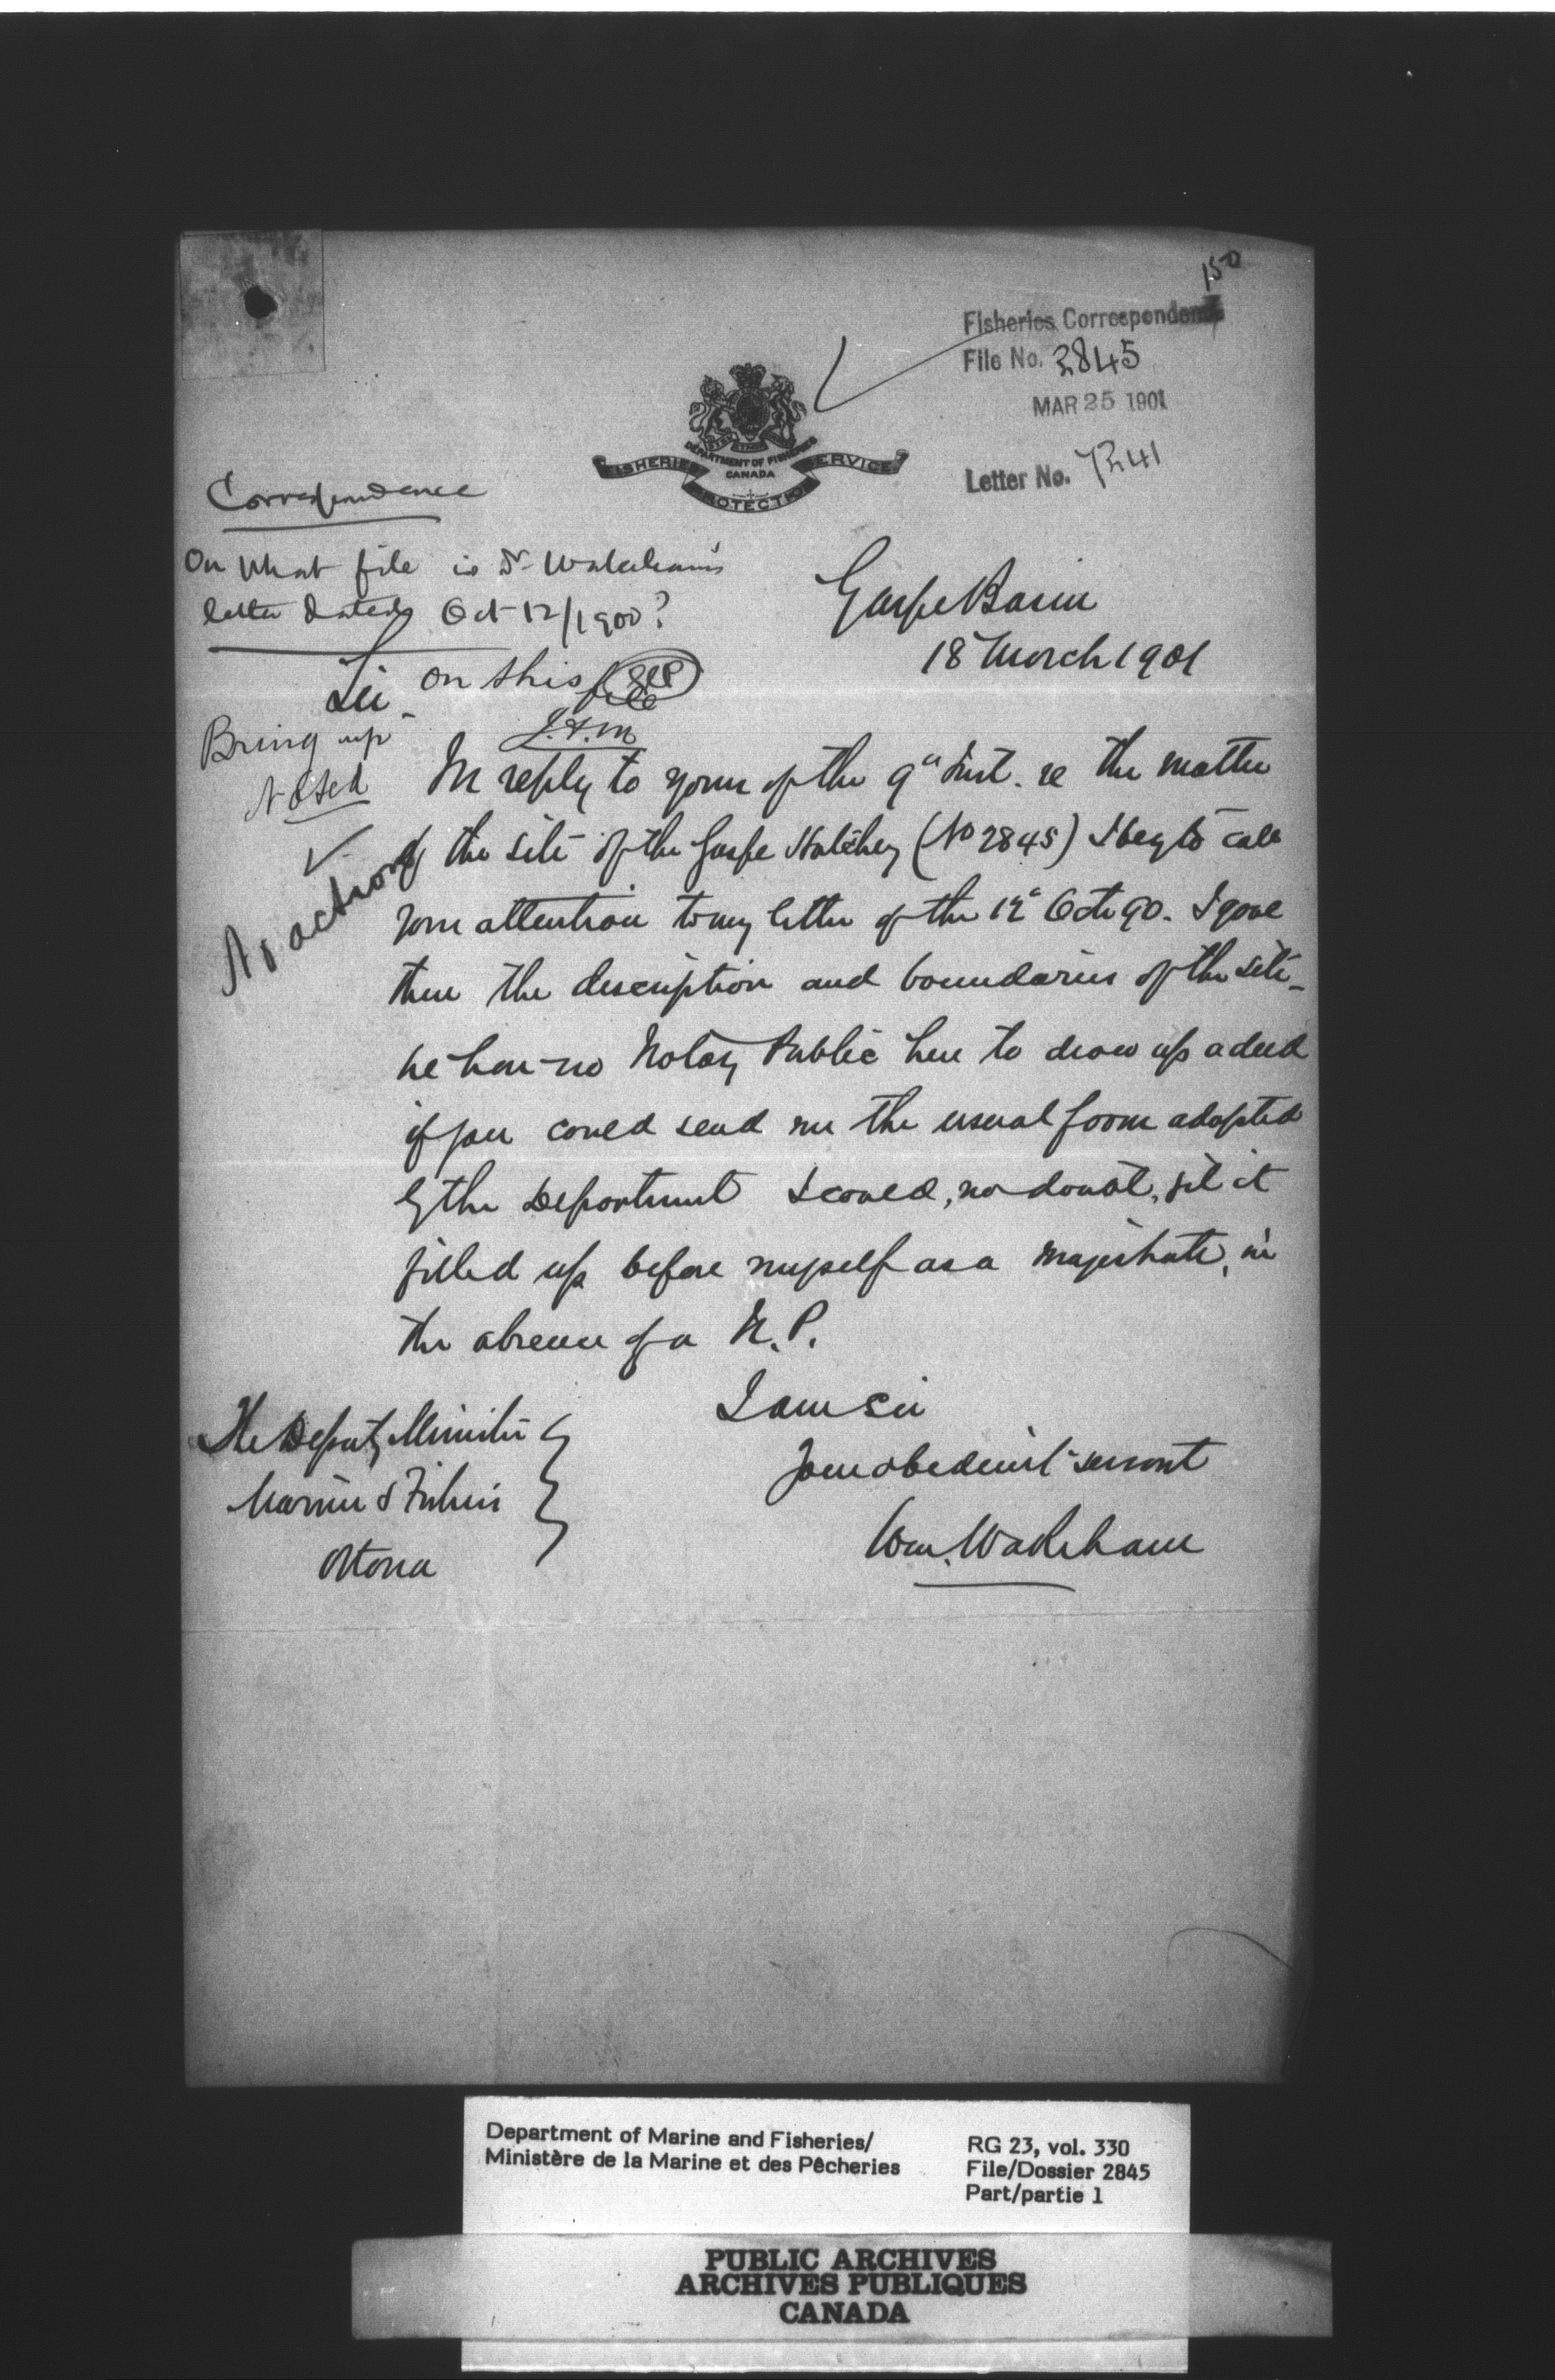 150
Fisheries Correspondence
File No. 2845
MAR 25 1901
Letter No. 7241
DEPARTMENT OF FISHERIES
CANADA
FISHERIES PROTECTION SERVICE
Correspondence
On what file is Dr Wakeham's
letter dated Oct 12/1900?
on this file
J.H.M
Bring up
Noted
No action
Gaspe Basin
18 March 1901
Sir
In reply to yours of the 9th Inst. re the matter
of the site of the Gaspe Hatchery (No 2845) I beg to call
your attention to my letter of the 12th Octr 90. I gave
then the description and boundaries of the site_
we have no Notary Public here to draw up a deed
if you could send me the usual form adopted
by the Department I could, no doubt, get it
filled up before myself as a magistrate, in
the absence of a N.P.
I am Sir
Your obedient servant
Wm. Wakeham
The Deputy Minister
Marine & Fisheries
Ottawa
Department of Marine and Fisheries/
Ministère de la Marine et des Pêcheries
RG 23, vol. 330
File/Dossier 2845
Part/partie 1
PUBLIC ARCHIVES
ARCHIVES PUBLIQUES
CANADA